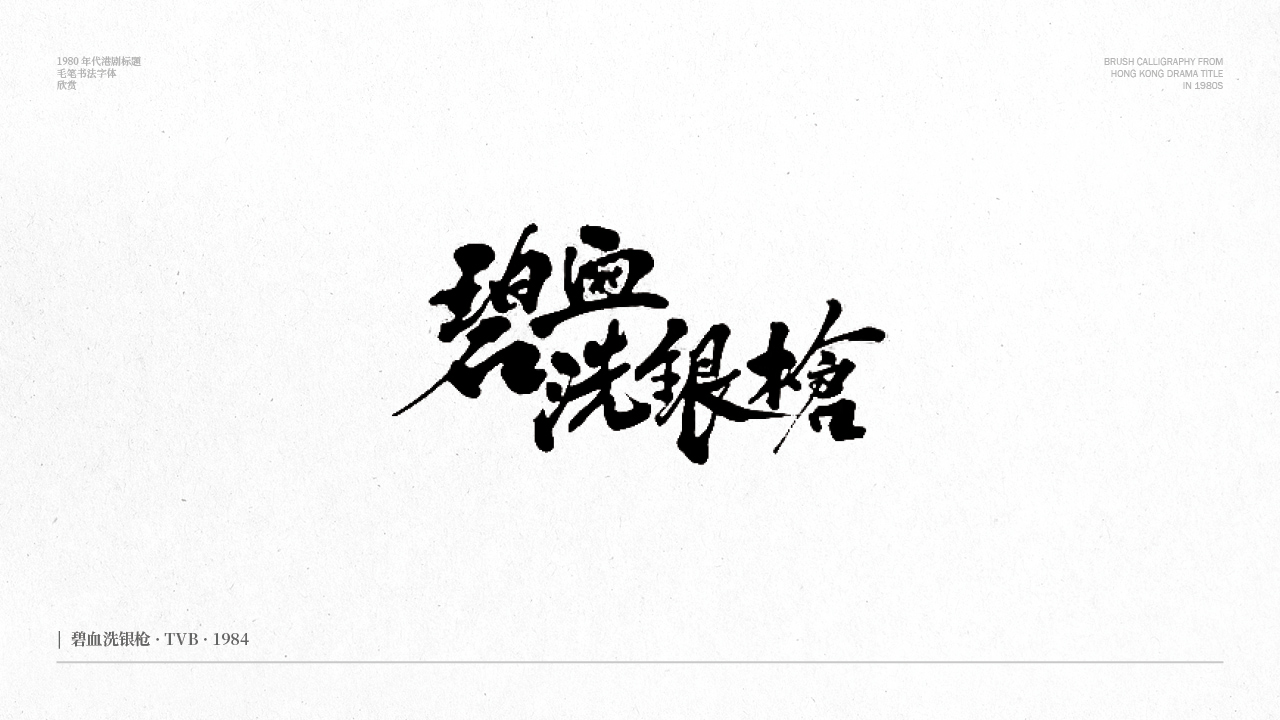 1980 年代港剧标题
毛笔书法字体
欣赏
BRUSH CALLIGRAPHY FROM
HONG KONG DRAMA TITLE
IN 1980S
碧血
洗銀槍
| 碧血洗银枪 · TVB · 1984